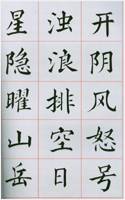 开阴风怒号
浊浪排空日
星隐曜山岳